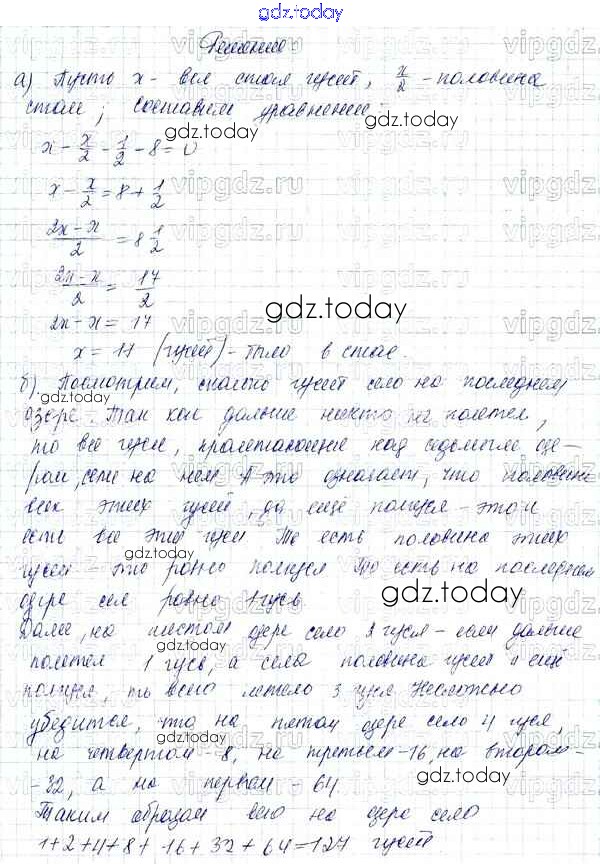 gdz.today
Решение.
а) Пусть x - вся стая гусей, x/2 - половина
стаи; Составим уравнение:
gdz.today
x - x/2 - 1/2 - 8 = 0
x - x/2 = 8 + 1/2
(2x - x)/2 = 8 1/2
(2x - x)/2 = 17/2
gdz.today
2x - x = 17
x = 17 (гусей) - было в стае.
б) Посмотрим, сколько гусей село на последнем
озере. Так как дальше никто не полетел,
то все гуси, пролетающие над седьмым озе-
ром, сели на нем. А это означает, что половина
всех этих гусей, да ещё полгуся - это и
есть все эти гуси. То есть половина этих
gdz.today
гусей - это ровно полгуся. То есть на последнем
gdz.today
озере сел ровно 1 гусь.
Далее, на шестом озере село 2 гуся - если дальше
полетел 1 гусь, а села половина гусей и ещё
полгуся, то всего летело 3 гуся. Несложно
убедится, что на пятом озере село 4 гуся,
на четвертом - 8, на третьем - 16, на втором -
- 32, а на первом - 64.
gdz.today
Таким образом всего на озере село
1+2+4+8+16+32+64=127 гусей.